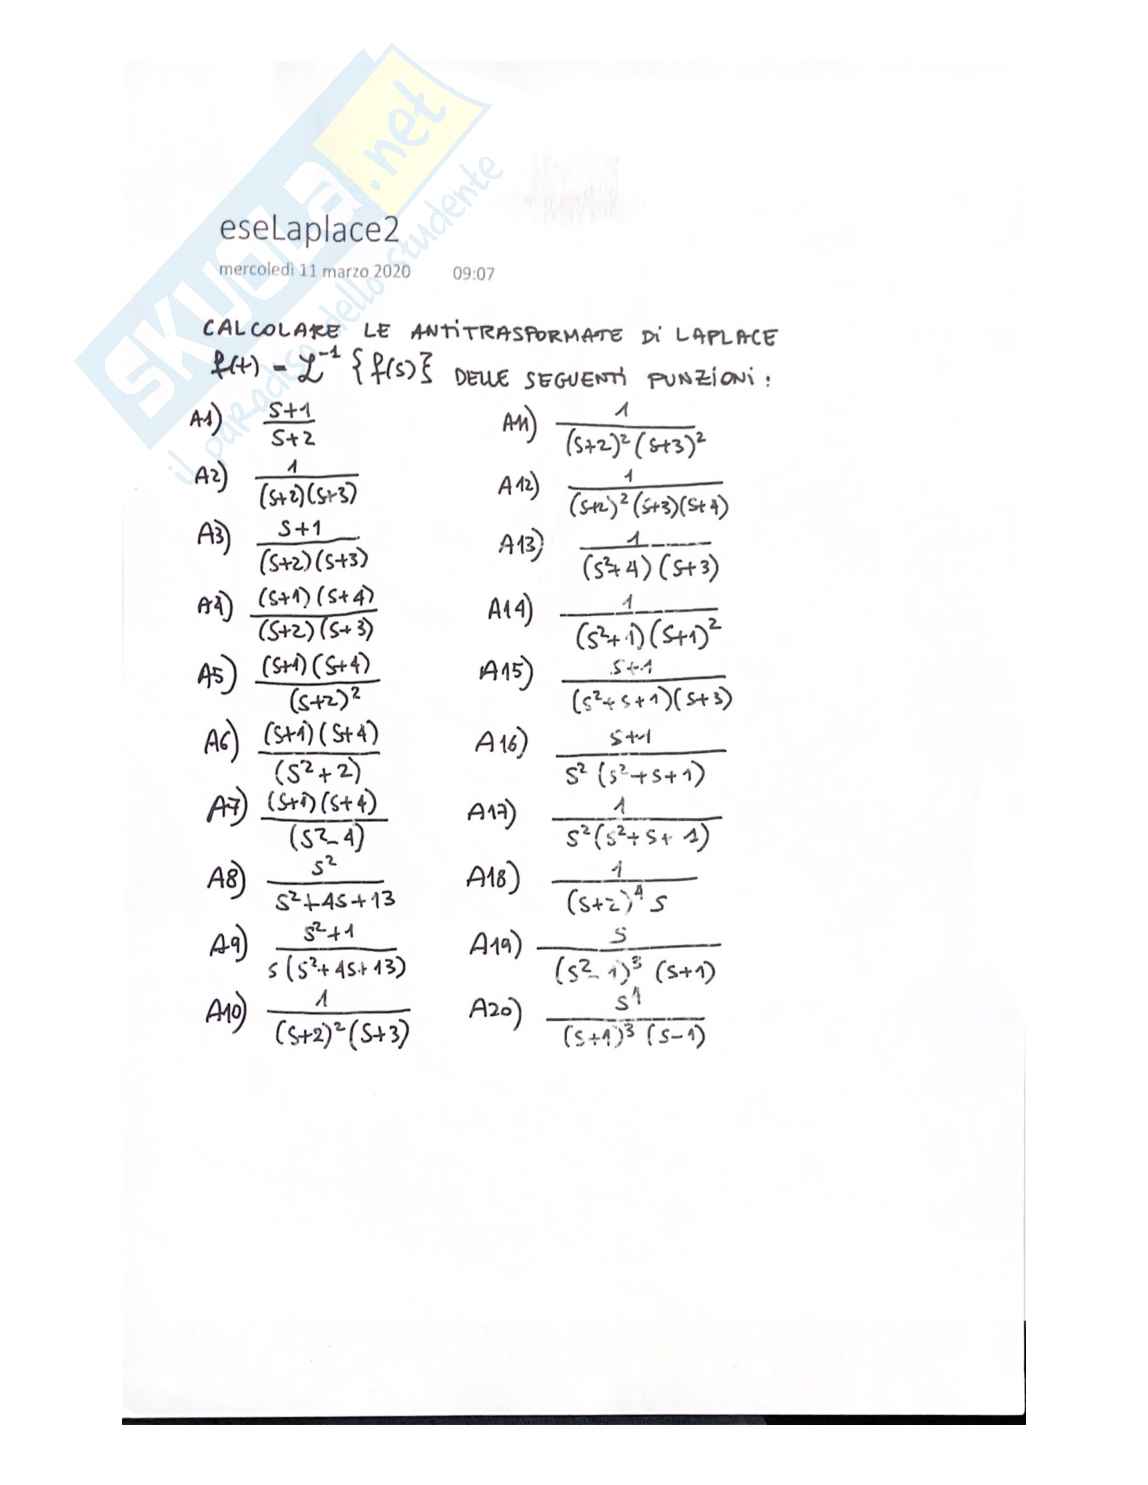 SKUOLA.net
il paradiso dello studente
eseLaplace2
mercoledì 11 marzo 2020 09:07
CALCOLARE LE ANTITRASFORMATE DI LAPLACE
f(t) = ℒ⁻¹ {f(s)} DELLE SEGUENTI FUNZIONI:
A1) (s+1)/(s+2)
A2) 1/((s+2)(s+3))
A3) (s+1)/((s+2)(s+3))
A4) ((s+1)(s+4))/((s+2)(s+3))
A5) ((s+1)(s+4))/((s+2)²)
A6) ((s+1)(s+4))/((s²+2))
A7) ((s+1)(s+4))/((s²-4))
A8) s²/(s²+4s+13)
A9) (s²+1)/(s(s²+4s+13))
A10) 1/((s+2)²(s+3))
A11) 1/((s+2)²(s+3)²)
A12) 1/((s+2)²(s+3)(s+4))
A13) 1/((s²+4)(s+3))
A14) 1/((s²+1)(s+1)²)
A15) (s+1)/((s²+s+1)(s+3))
A16) (s+1)/(s²(s²+s+1))
A17) 1/(s²(s²+s+1))
A18) 1/((s+2)⁴s)
A19) s/((s²-1)³(s+1))
A20) s⁴/((s+1)³(s-1))